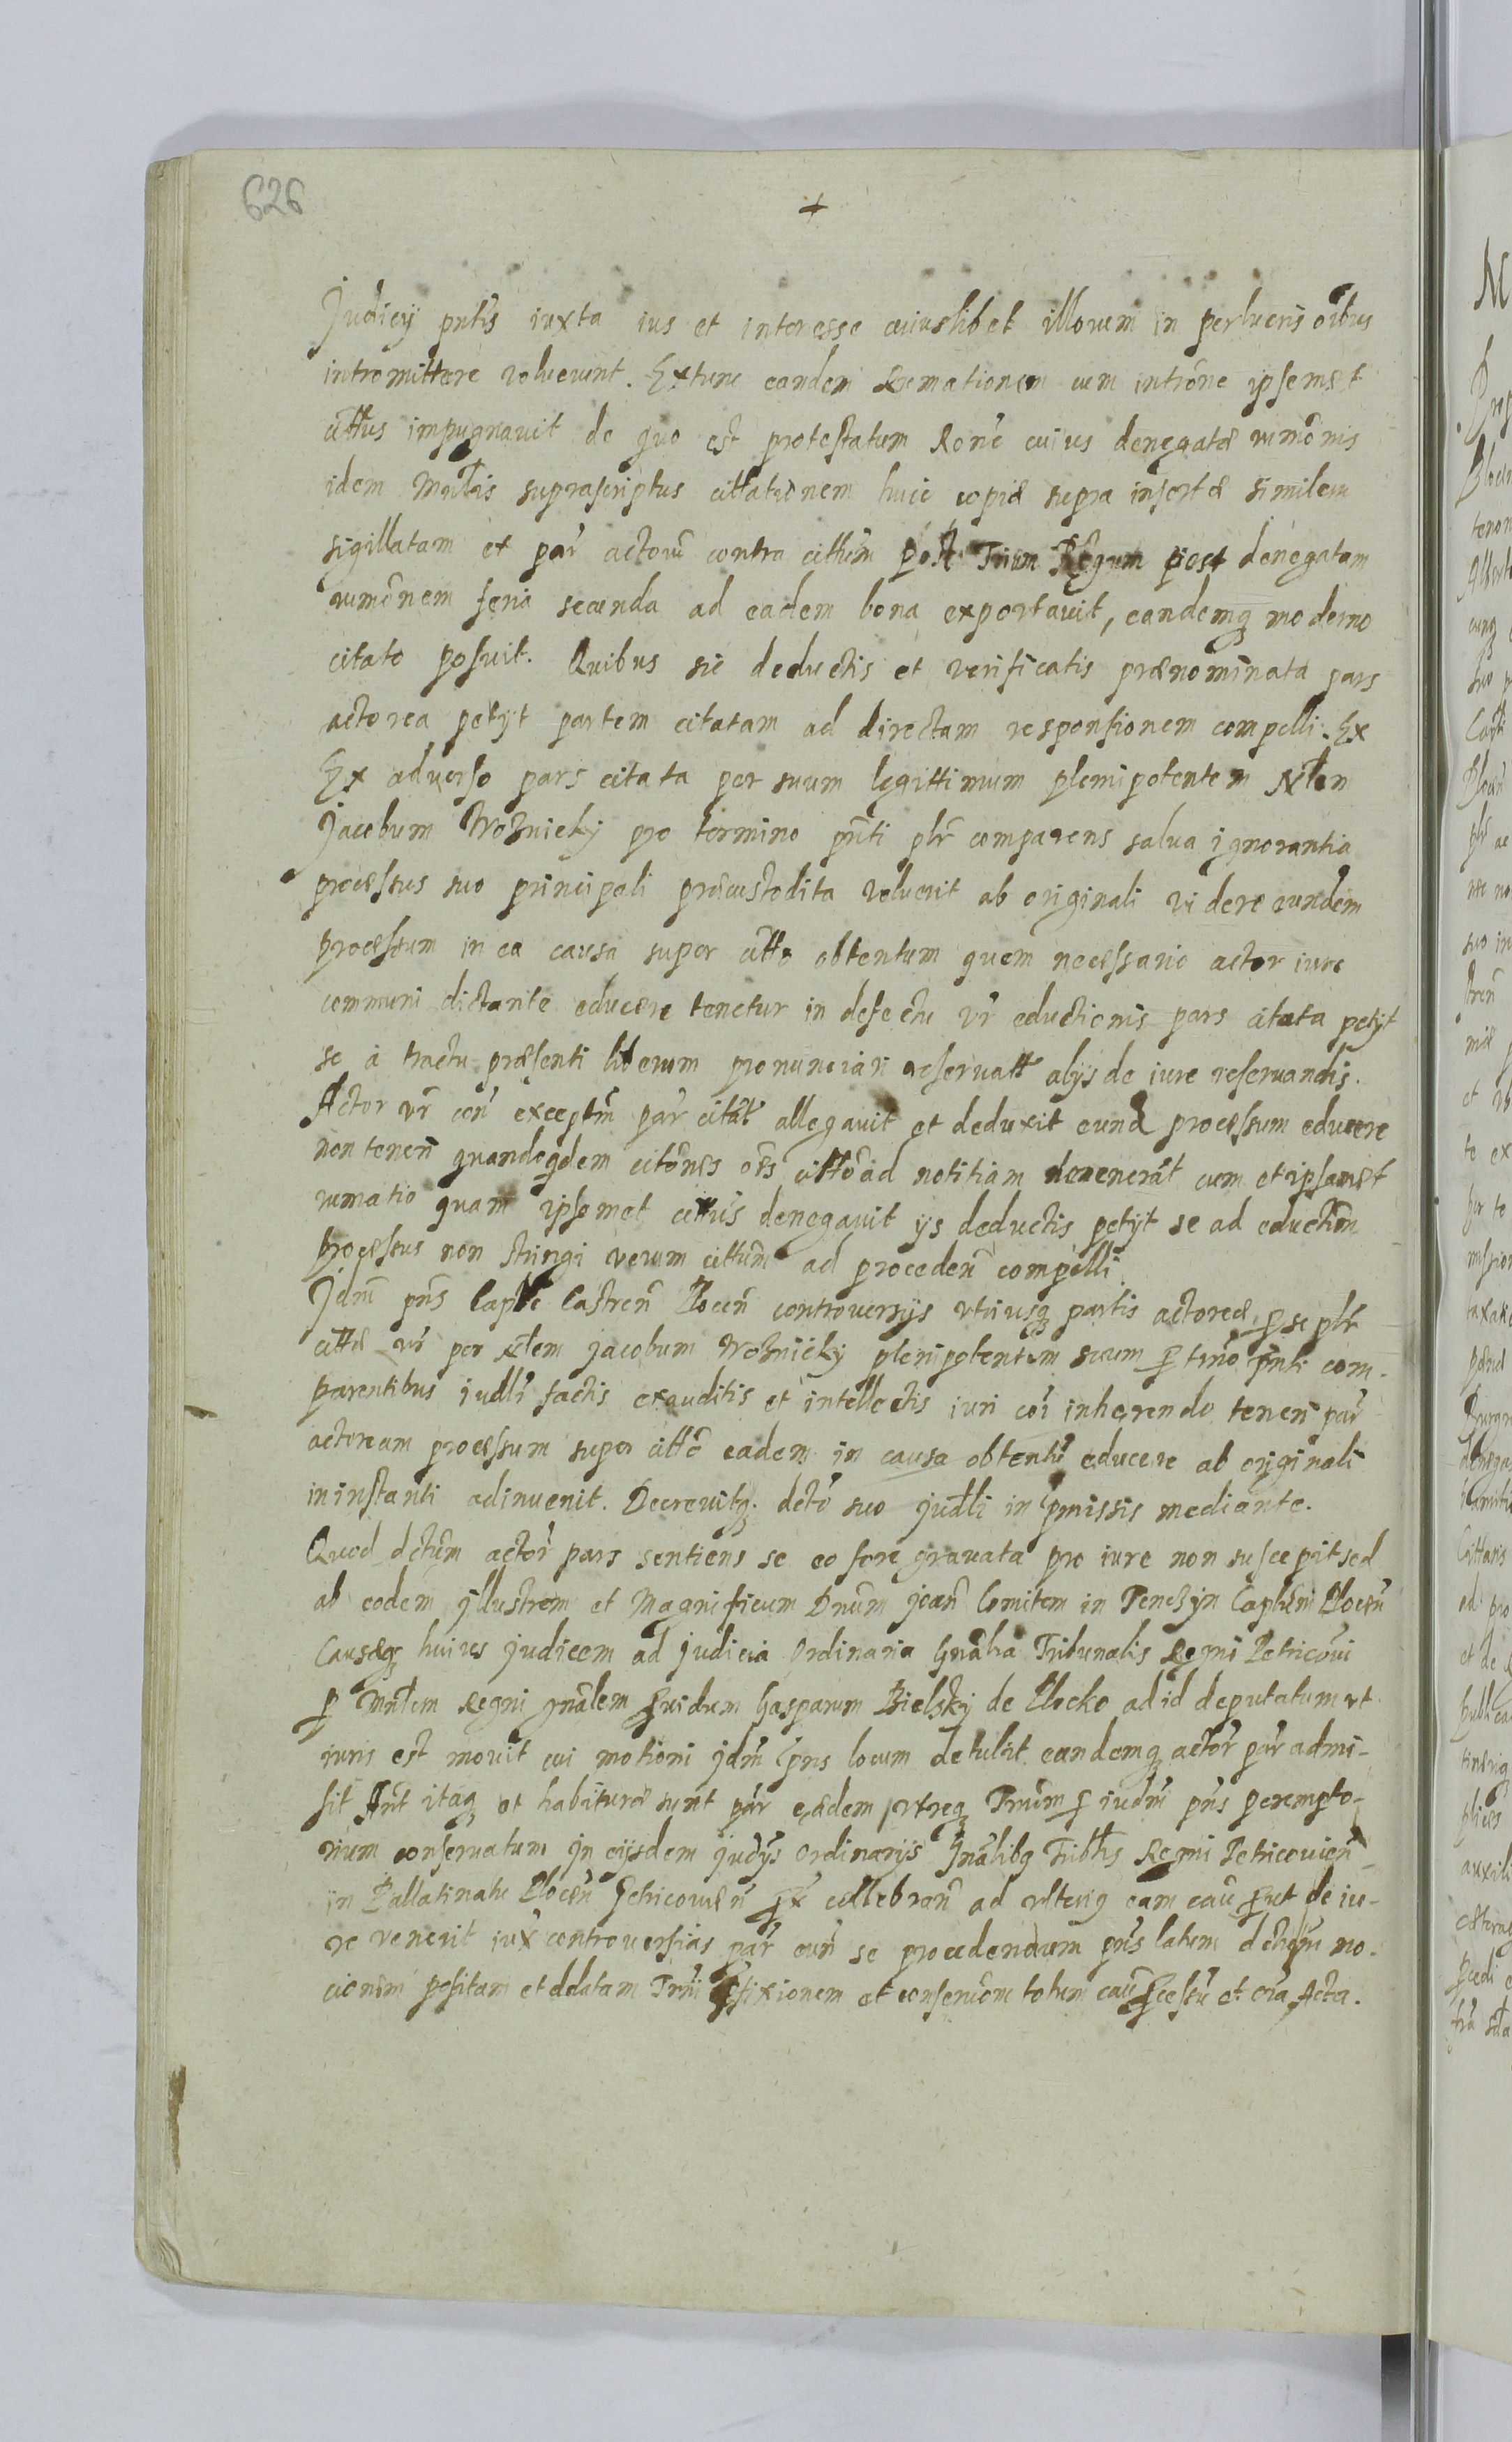 626
+
Judicÿ pntis iuxta ius et interesse cuiuslibet illorum in perlucris oibus
intromittere voluerunt. Extunc eandem Rumationem cum introne ipsemet
cittus impugnauit de quo est protestatum Rone cuius denegatæ rumonis
idem Mnlis suprascriptus cittationem huic copiæ supra insertæ similem
sigillatam ex par actorum contra cittum post Trium Regum post denegatam
rumonem feria secunda ad eadem bona exportauit, eandemq moderno
citato posuit. Quibus sic deductis et verificatis prænominata pars
actorea petÿt partem citatam ad directam responsionem compelli. Ex
Ex aduerso pars citata per suum legittimum plenipotentem Nlem
Jacobum Woznicky pro termino pnti plr comparens salua ignorantia
processus suo principali præcustodita voluerit ab originali videre eundem
processum in ea causa super citto obtentum quem necessario actor iure
communi dictante educere tenetur in defectu vr eductionis pars citata petÿt
se a tractu præsenti liberum pronunciari reseruatt alÿs de iure reseruandis.
Actor vr con exceptm par citat allegauit et deduxit eund processum educere
non tenen quandoqdem citones oes citto ad notitiam deuenerat cum et ipsamet
rumatio quam ipsemet cittus denegauit ÿs deductis petÿt se ad eductim
processus non stringi verum cittum ad proceden compelli.
Jdm pns Caple Castren Plocen controuersÿs vtriusq partis actoreæ p se plr
cittæ vr per Nlem Jacobum Woznicky plenipotentem suum p tmo pnti com-
parentibus iudlr factis exauditis et intellectis iuri coi inherendo tenen par
actoream processum super citto eadem in causa obtentu educere ab originali
in instanti adinuenit. Decreuitq. deto suo judli in pmissis mediante.
Quod dctum actor pars sentiens se eo fore grauata pro iure non suscepit sed
ab eodem jllustrem et Magnificum Dnum joan Comitem in Tenczyn Captum Plocen
Causæq huius judicem ad judicia Ordinaria Gnalia Tribunalis Regni Petricoui
p Mnlem Regni gnalem puidum Gasparum Bielsky de Plocko ad id deputatum vt
iuris est mouit cui motioni jdm pns locum detulit eandemq actor par admi-
sit Hnt itaq et habituræ sunt par eædem vtreq Tmum p iudm pns perempto-
rium conseruatum in eÿsdem judÿs Ordinarÿs Gnalibq Tribtis Regni Petricouien
in Pallatinatu Plocen Petricouien px cellebran ad vlteriq eam cau put de iu-
re venerit iux controuersias par cun se procedendum pns latum dctum mo-
cionem positam et ddatam Tmi pfixionem et conseruom totum cau pcessu et oia Acta.